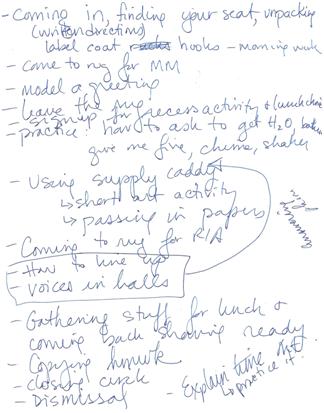 - Coming in, finding your seat, unpacking
(written directions)
label coat hooks - morning work
- come to rug for MM
- model a greeting
- leave the rug
- signup for recess activity & lunch choice
- practice: how to ask to get H2O, bathroom
give me five, chime, shaker
- Using supply caddy
↳ short art activity
↳ passing in papers
- Coming to rug for R/A
- How to line up
- voices in halls
- Gathering stuff for lunch &
coming back showing ready
- Copying hmwk
- closing circle
- Dismissal
- Explain time out
↳ practice it!